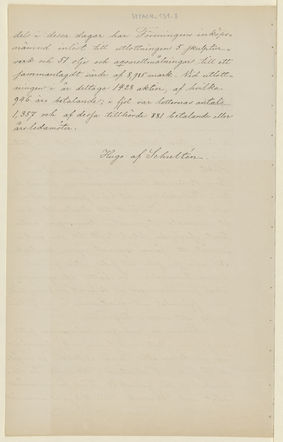 dels i dessa dagar har Föreningens inköps-
nämnd inlöst till utlottningen 5 skulptur-
verk och 51 olje och aqvarellmålningar till ett
sammanlagdt värde af 8,915 mark. Vid utlott-
ningen i år deltaga 1428 aktier, af hvilka
996 äro betalande; i fjol var lotternas antal
1,357 och af dessa tillhörde 881 betalande eller
årsledamöter.
Hugo af Schultén